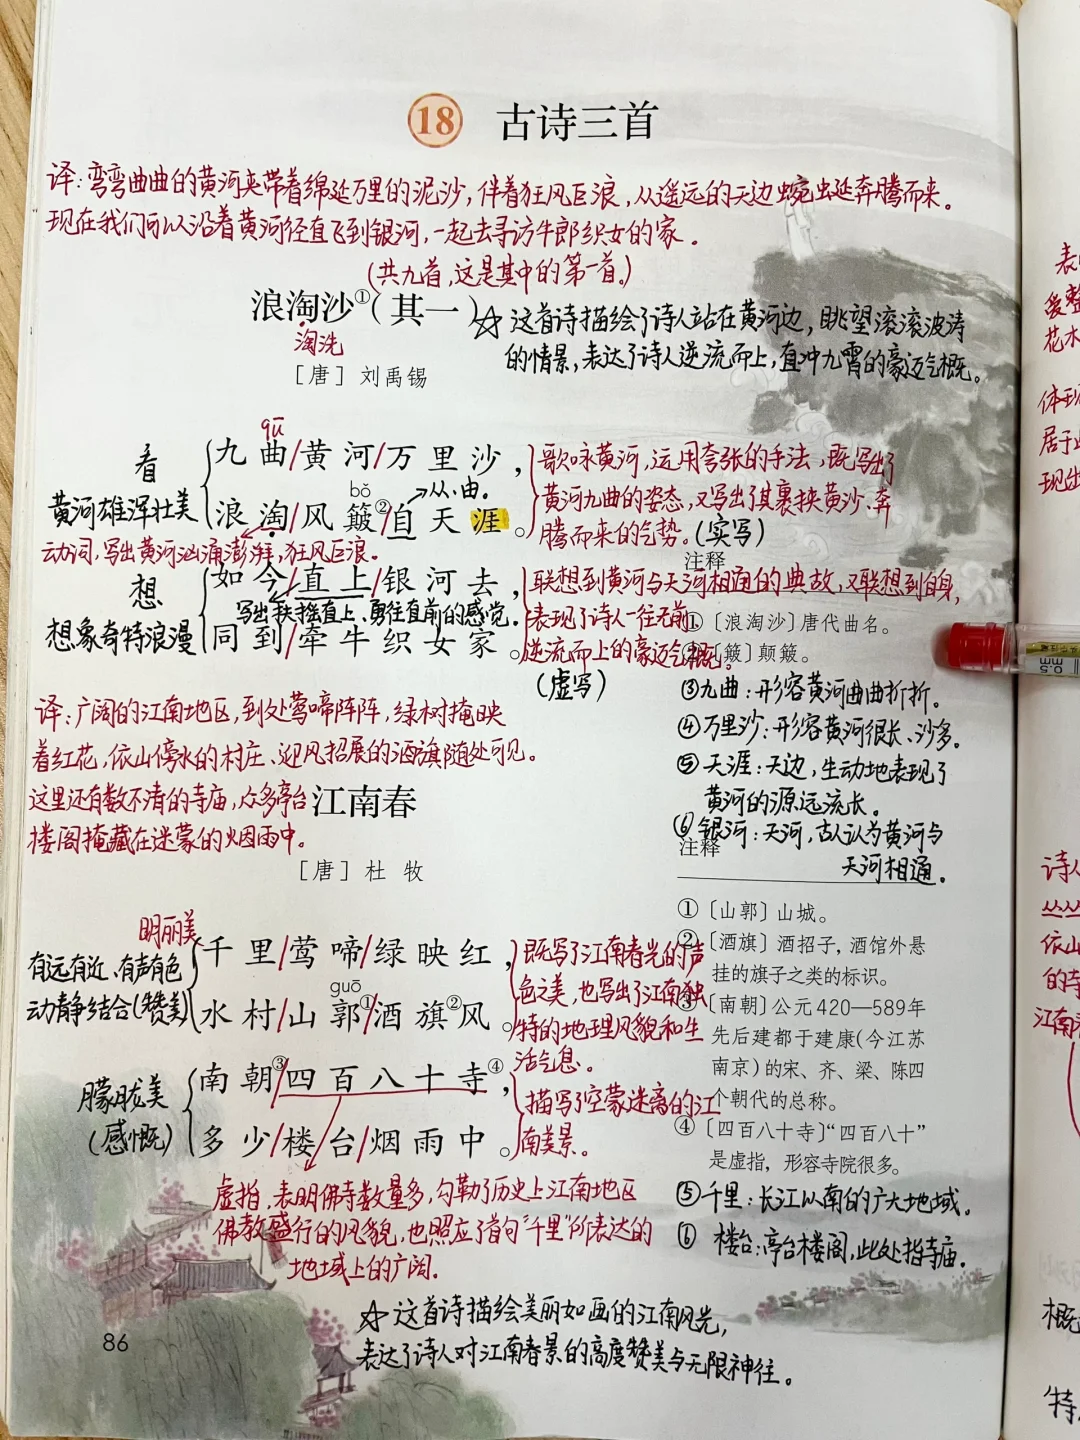 18 古诗三首
译:弯弯曲曲的黄河夹带着绵延万里的泥沙,伴着狂风巨浪,从遥远的天边蜿蜒奔腾而来。
现在我们可以沿着黄河径直飞到银河,一起去寻访牛郎织女的家。
(共九首,这是其中的第一首。)
浪淘沙①(其一)
淘洗
☆这首诗描绘了诗人站在黄河边,眺望滚滚波涛
的情景,表达了诗人逆流而上,直冲九霄的豪迈气概。
[唐] 刘禹锡
看
黄河雄浑壮美
qū
九曲/黄河/万里沙,
bǒ
从、由。
浪淘/风簸②/自天涯。
动词,写出黄河汹涌澎湃,狂风巨浪。
歌咏黄河,运用夸张的手法,既写出了
黄河九曲的姿态,又写出了其裹挟黄沙、奔
腾而来的气势。(实写)
想
想象奇特浪漫
如今/直上/银河去,
写出扶摇直上、勇往直前的感觉。
同到/牵牛织女家。
联想到黄河与天河相通的典故,又联想到自身,
表现了诗人一往无前
逆流而上的豪迈气概。
(虚写)
注释
①〔浪淘沙〕唐代曲名。
〔簸〕颠簸。
③九曲:形容黄河曲曲折折。
④万里沙:形容黄河很长、沙多。
⑤天涯:天边,生动地表现了
黄河的源远流长。
⑥银河:天河,古人认为黄河与
天河相通。
译:广阔的江南地区,到处莺啼阵阵,绿树掩映
着红花,依山傍水的村庄、迎风招展的酒旗随处可见。
这里还有数不清的寺庙,众多亭台
楼阁掩藏在迷蒙的烟雨中。
江南春
[唐] 杜牧
明丽美
有远有近、有声有色
动静结合(赞美)
千里/莺啼/绿映红,
guō
水村/山郭①/酒旗②风。
既写了江南春光的声
色之美,也写出了江南独
特的地理风貌和生
活气息。
朦胧美
(感慨)
南朝③/四百八十寺④,
多少/楼台/烟雨中。
描写了空蒙迷离的江
南美景。
虚指,表明佛寺数量多,勾勒了历史上江南地区
佛教盛行的风貌,也照应了首句“千里”所表达的
地域上的广阔。
注释
①〔山郭〕山城。
②〔酒旗〕酒招子,酒馆外悬
挂的旗子之类的标识。
③〔南朝〕公元420—589年
先后建都于建康(今江苏
南京)的宋、齐、梁、陈四
个朝代的总称。
④〔四百八十寺〕“四百八十”
是虚指,形容寺院很多。
⑤千里:长江以南的广大地域。
⑥ 楼台:亭台楼阁,此处指寺庙。
☆这首诗描绘美丽如画的江南风光,
表达了诗人对江南春景的高度赞美与无限神往。
86
爱整
花木
体现
居于
现出
诗人
丛丛
依山
的寺
江南
概
特
0.5